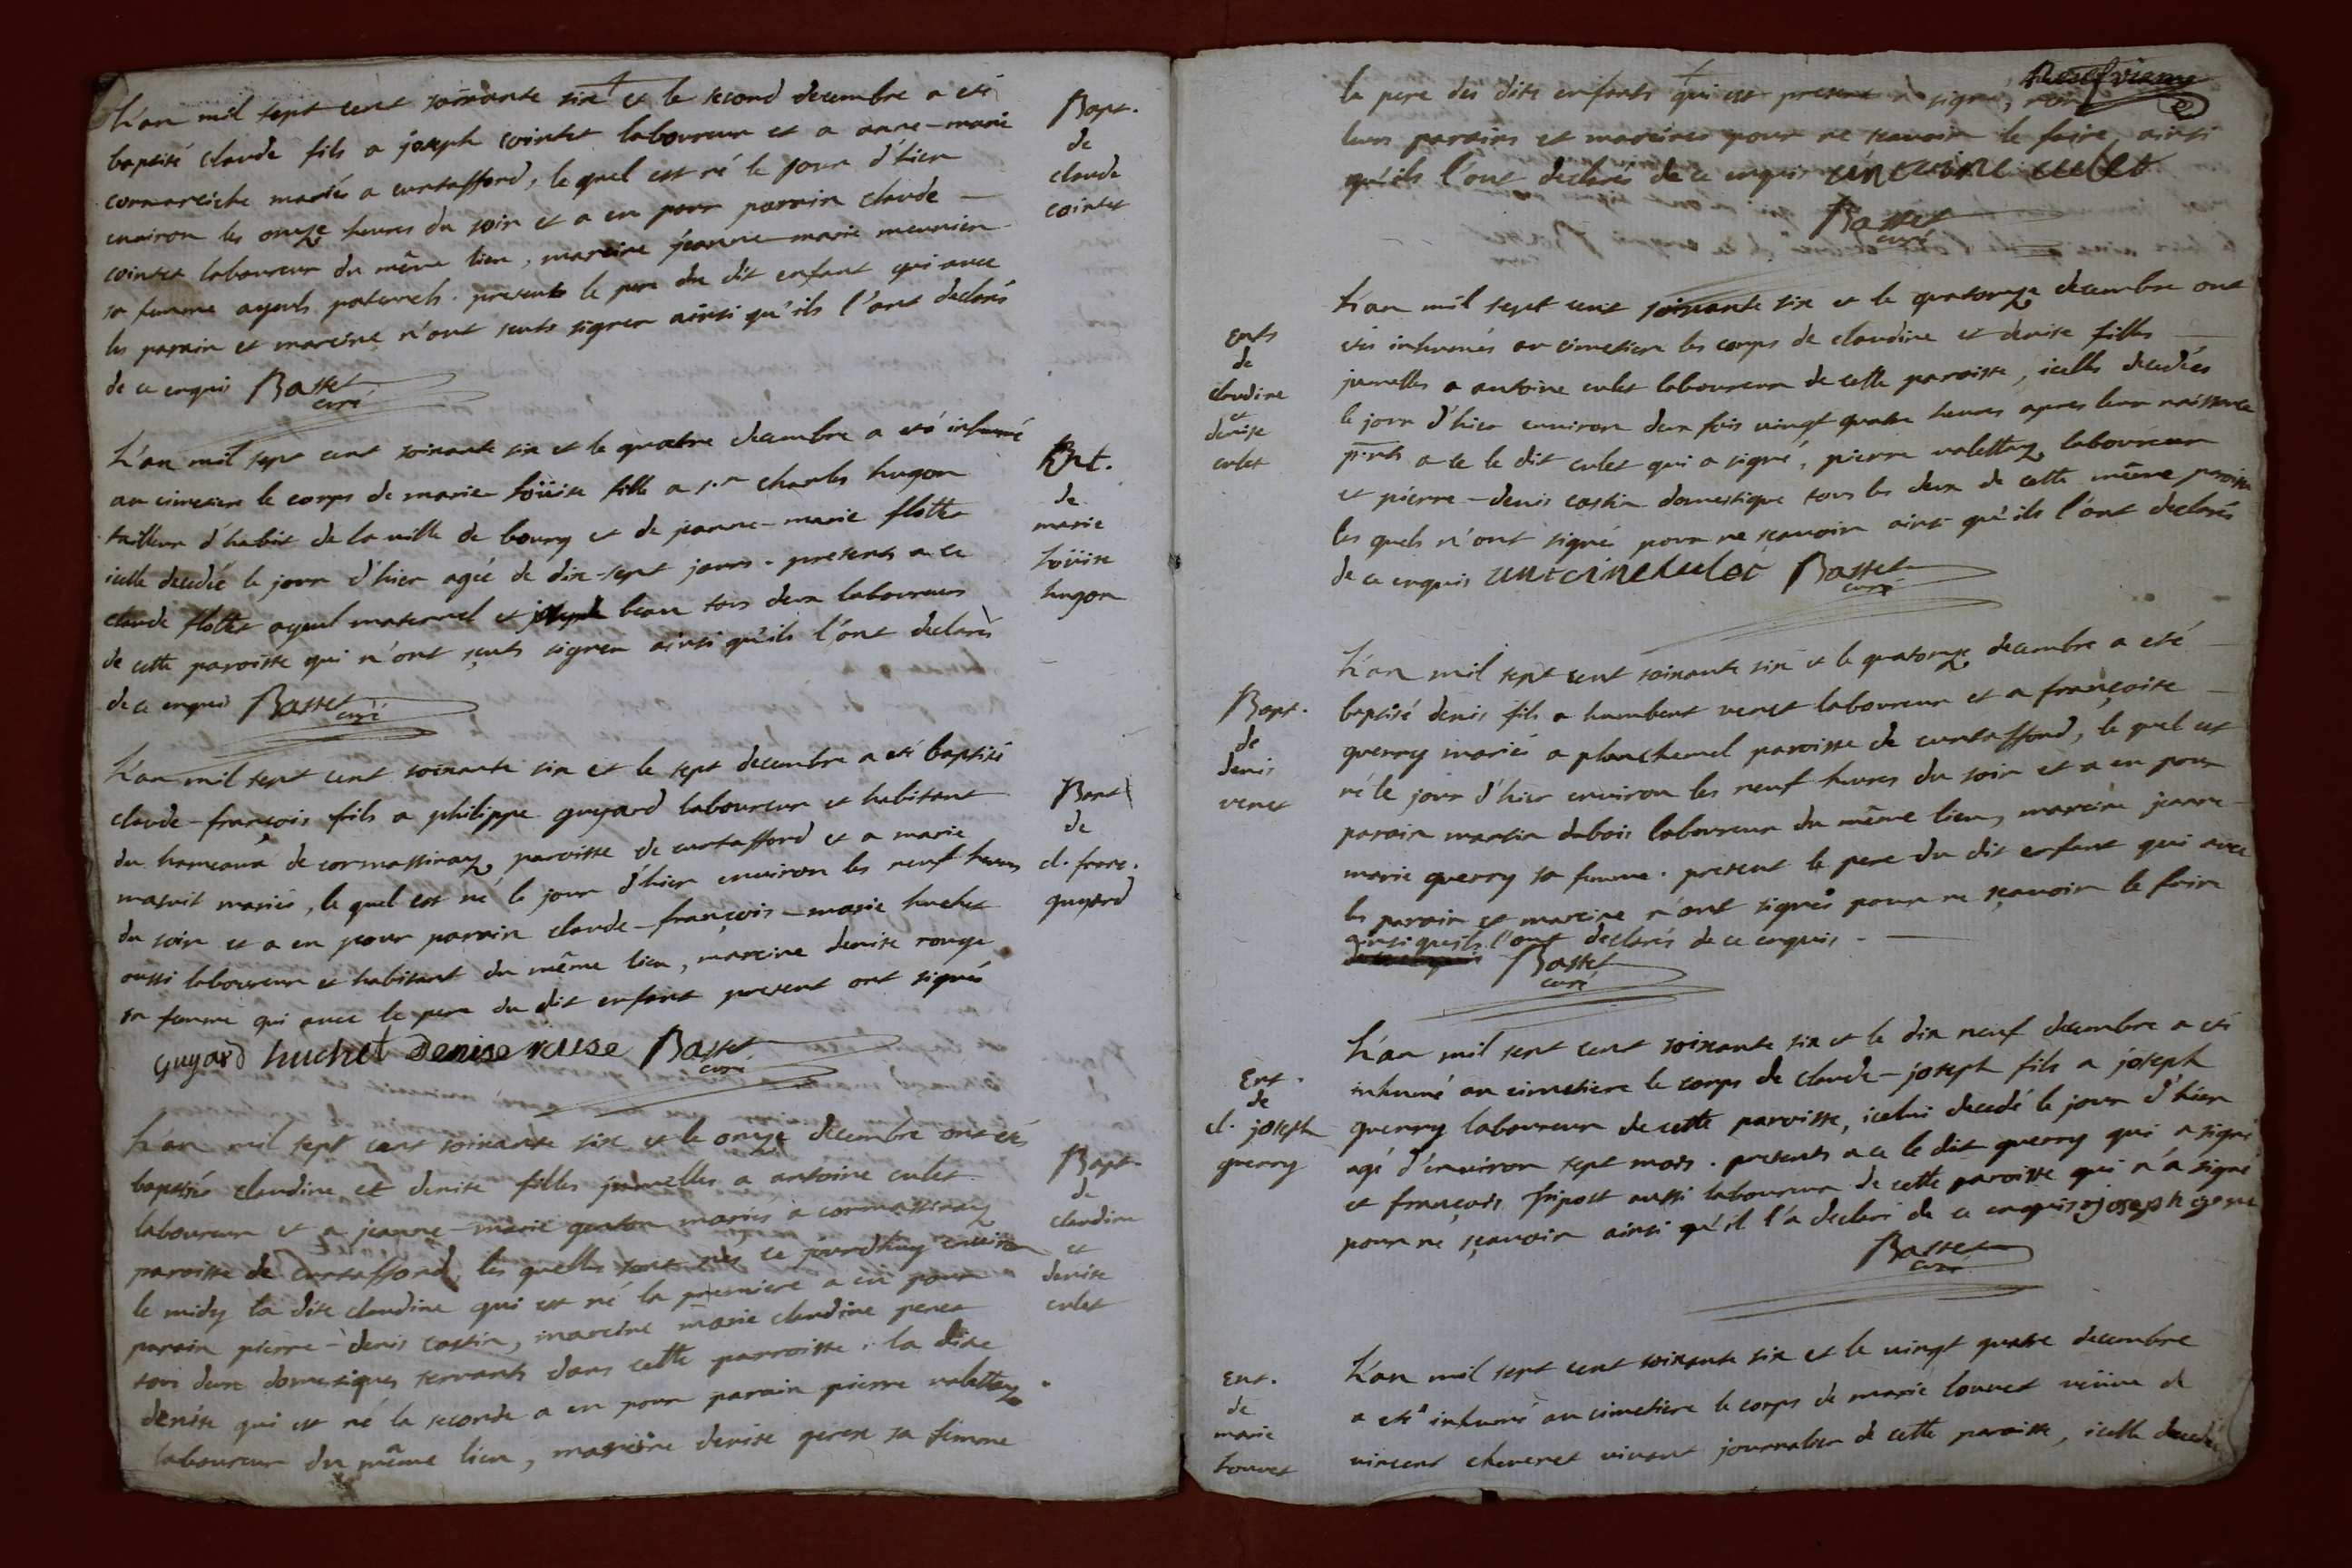 L'an mil sept cent soixante six et le second decembre a eté
baptisé claude fils a joseph cointet laboureur et a anne-marie
cornareiche mariés a curtafford, le quel est né le jour d'hier
environ les onze heures du soir et a eu pour parain claude
cointet laboureur du même lieu, mareine jeanne-marie meunier
sa femme ayeuls paternels. presents le pere du dit enfant qui avec
les parain et mareine n'ont sçuts signer ainsi qu'ils l'ont declarés
de ce enquis Basset
curé
Bapt.
de
claude
cointet
L'an mil sept cent soixante six et le quatre decembre a eté inhumé
au cimetiere le corps de marie-loüise fille a s.r charles hugon
tailleur d'habit de la ville de bourg et de jeanne-marie flottet
icelle decedée le jour d'hier agée de dix-sept jours. presents a ce
claude flottet ayeul maternel et joseph beau tous deux laboureurs
de cette paroisse qui n'ont sçuts signer ainsi qu'ils l'ont declarés
de ce enquis Basset
curé
Ent.
de
marie
loüise
hugon
L'an mil sept cent soixante six et le sept decembre a eté baptisé
claude-françois fils a philippe guyard laboureur et habitant
du hameaux de cormassinaz paroisse de curtafford et a marie
mariés, le quel est né le jour d'hier environ les neuf heures
du soir et a eu pour parain claude-françois-marie huchet
aussi laboureur et habitant du même lieu, mareine denise rouge
sa femme qui avec le pere du dit enfant present ont signés
guyard huchet Denise ruse Basset
curé
Bapt
de
cl. franc.
guyard
L'an mil sept cent soixante six et le onze decembre ont etés
baptisées claudine et denise filles jumelles a antoine culet
laboureur et a jeanne-marie mariés a cormassinaz
paroisse de Curtafford, les quelles sont nés ce jourdhuy environ
le midy la dite claudine qui est né la premiere a eu pour
parain pierre-denis castin, mareine marie claudine peret
tous deux domestiques servants dans cette parroisse. la dite
denise qui est né la seconde a eu pour parain pierre valettaz
laboureur du même lieu, mareine denise sa femme
Bapt.
de
claudine
et
denise
culet
le pere des dits enfants qui est present a signé, non
leurs parains et mareines pour ne sçavoir le faire, ainsi
qu'ils l'ont declarés de ce enquis antoine culet
Basset
curé
Ents
de
claudine
et
denise
culet
L'an mil sept cent soixante six et le quatorze decembre ont
etés inhumés au cimetiere les corps de claudine et denise filles
jumelles a antoine culet laboureur de cette paroisse, icelles decedées
le jour d'hier environ deux fois vingt quatre heures apres leur naissance
p.nts a ce le dit culet qui a signé, pierre valettaz laboureur
et pierre-denis castin domestique tous les deux de cette même paroisse
les quels n'ont signés pour ne sçavoir ainsi qu'ils l'ont declarés
de ce enquis antoine culet Basset
curé
Bapt.
de
denis
venet
L'an mil sept cent soixante six et le quatorze decembre a eté
baptisé denis fils a humbert venet laboureur et a françoise
guerry mariés a planchemel paroisse de curtafford, le quel est
né le jour d'hier environ les neuf heures du soir et a eu pour
parain martin dubois laboureur du même lieu, mareine jeanne-
marie guerry sa femme. present le pere du dit enfant qui avec
les parain et mareine n'ont signés pour ne sçavoir le faire
ainsi qu'ils l'ont declarés de ce enquis.
Basset
curé
Ent.
de
cl. joseph
guerry
L'an mil sept cent soixante six et le dix neuf decembre a eté
inhumé au cimetiere le corps de claude-joseph fils a joseph
guerry laboureur de cette paroisse, icelui decedé le jour d'hier
agé d'environ sept mois. presents a ce le dit guerry qui a signé
et françois fripost aussi laboureur de cette paroisse qui n'a signé
pour ne sçavoir ainsi qu'il l'a declaré de ce enquis joseph
Basset
curé
Ent.
de
marie
louvet
L'an mil sept cent soixante six et le vingt quatre decembre
a eté inhumé au cimetiere le corps de marie louvet veüve de
vincent cheveret vivant journalier de cette paroisse, icelle decedée